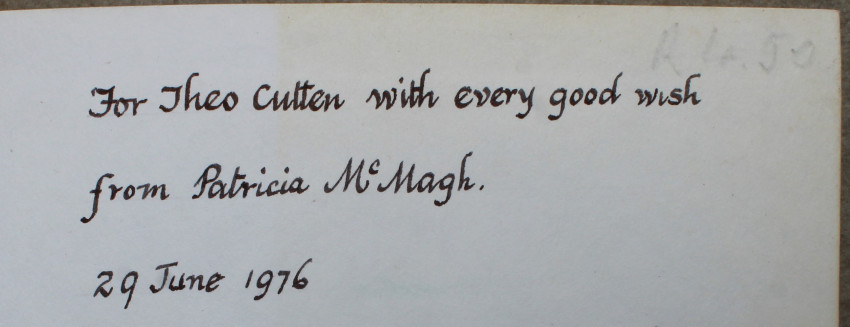 R 4.50
For Theo Cutten with every good wish
from Patricia McMagh.
29 June 1976